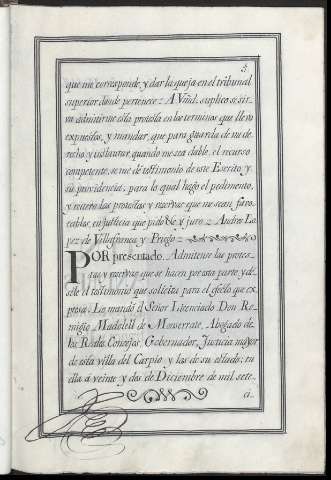 5.
que me corresponde y dar la queja en el tribunal
superior, donde pertenece = A Vmd. suplico se sir-
va admitirme esta protesta en los terminos que llevo
expuestos, y mandar, que para guarda de mi de-
recho è instaurar, quando me sea dable, el recurso
competente, se me dé testimonio de este Escrito y
su providencia, para lo qual hago el pedimento,
y reitero las protestas y reservas que me sean favo-
rables, en justicia que pido &c y juro = Andres Lo-
pez de Villafranca y Priego =
POR presentado. Admitense las protes-
tas y reservas que se hacen por esta parte, y dé-
sele el testimonio que solicita para el efecto que ex-
presa. Lo mandó el Señor Licenciado Don Re-
migio Madolell de Monserrate, Abogado de
los Reales Consejos, Governador, Justicia mayor
de esta villa del Carpio y las de su estado; en
ella a veinte y dos de Diciembre de mil sete-
ci-